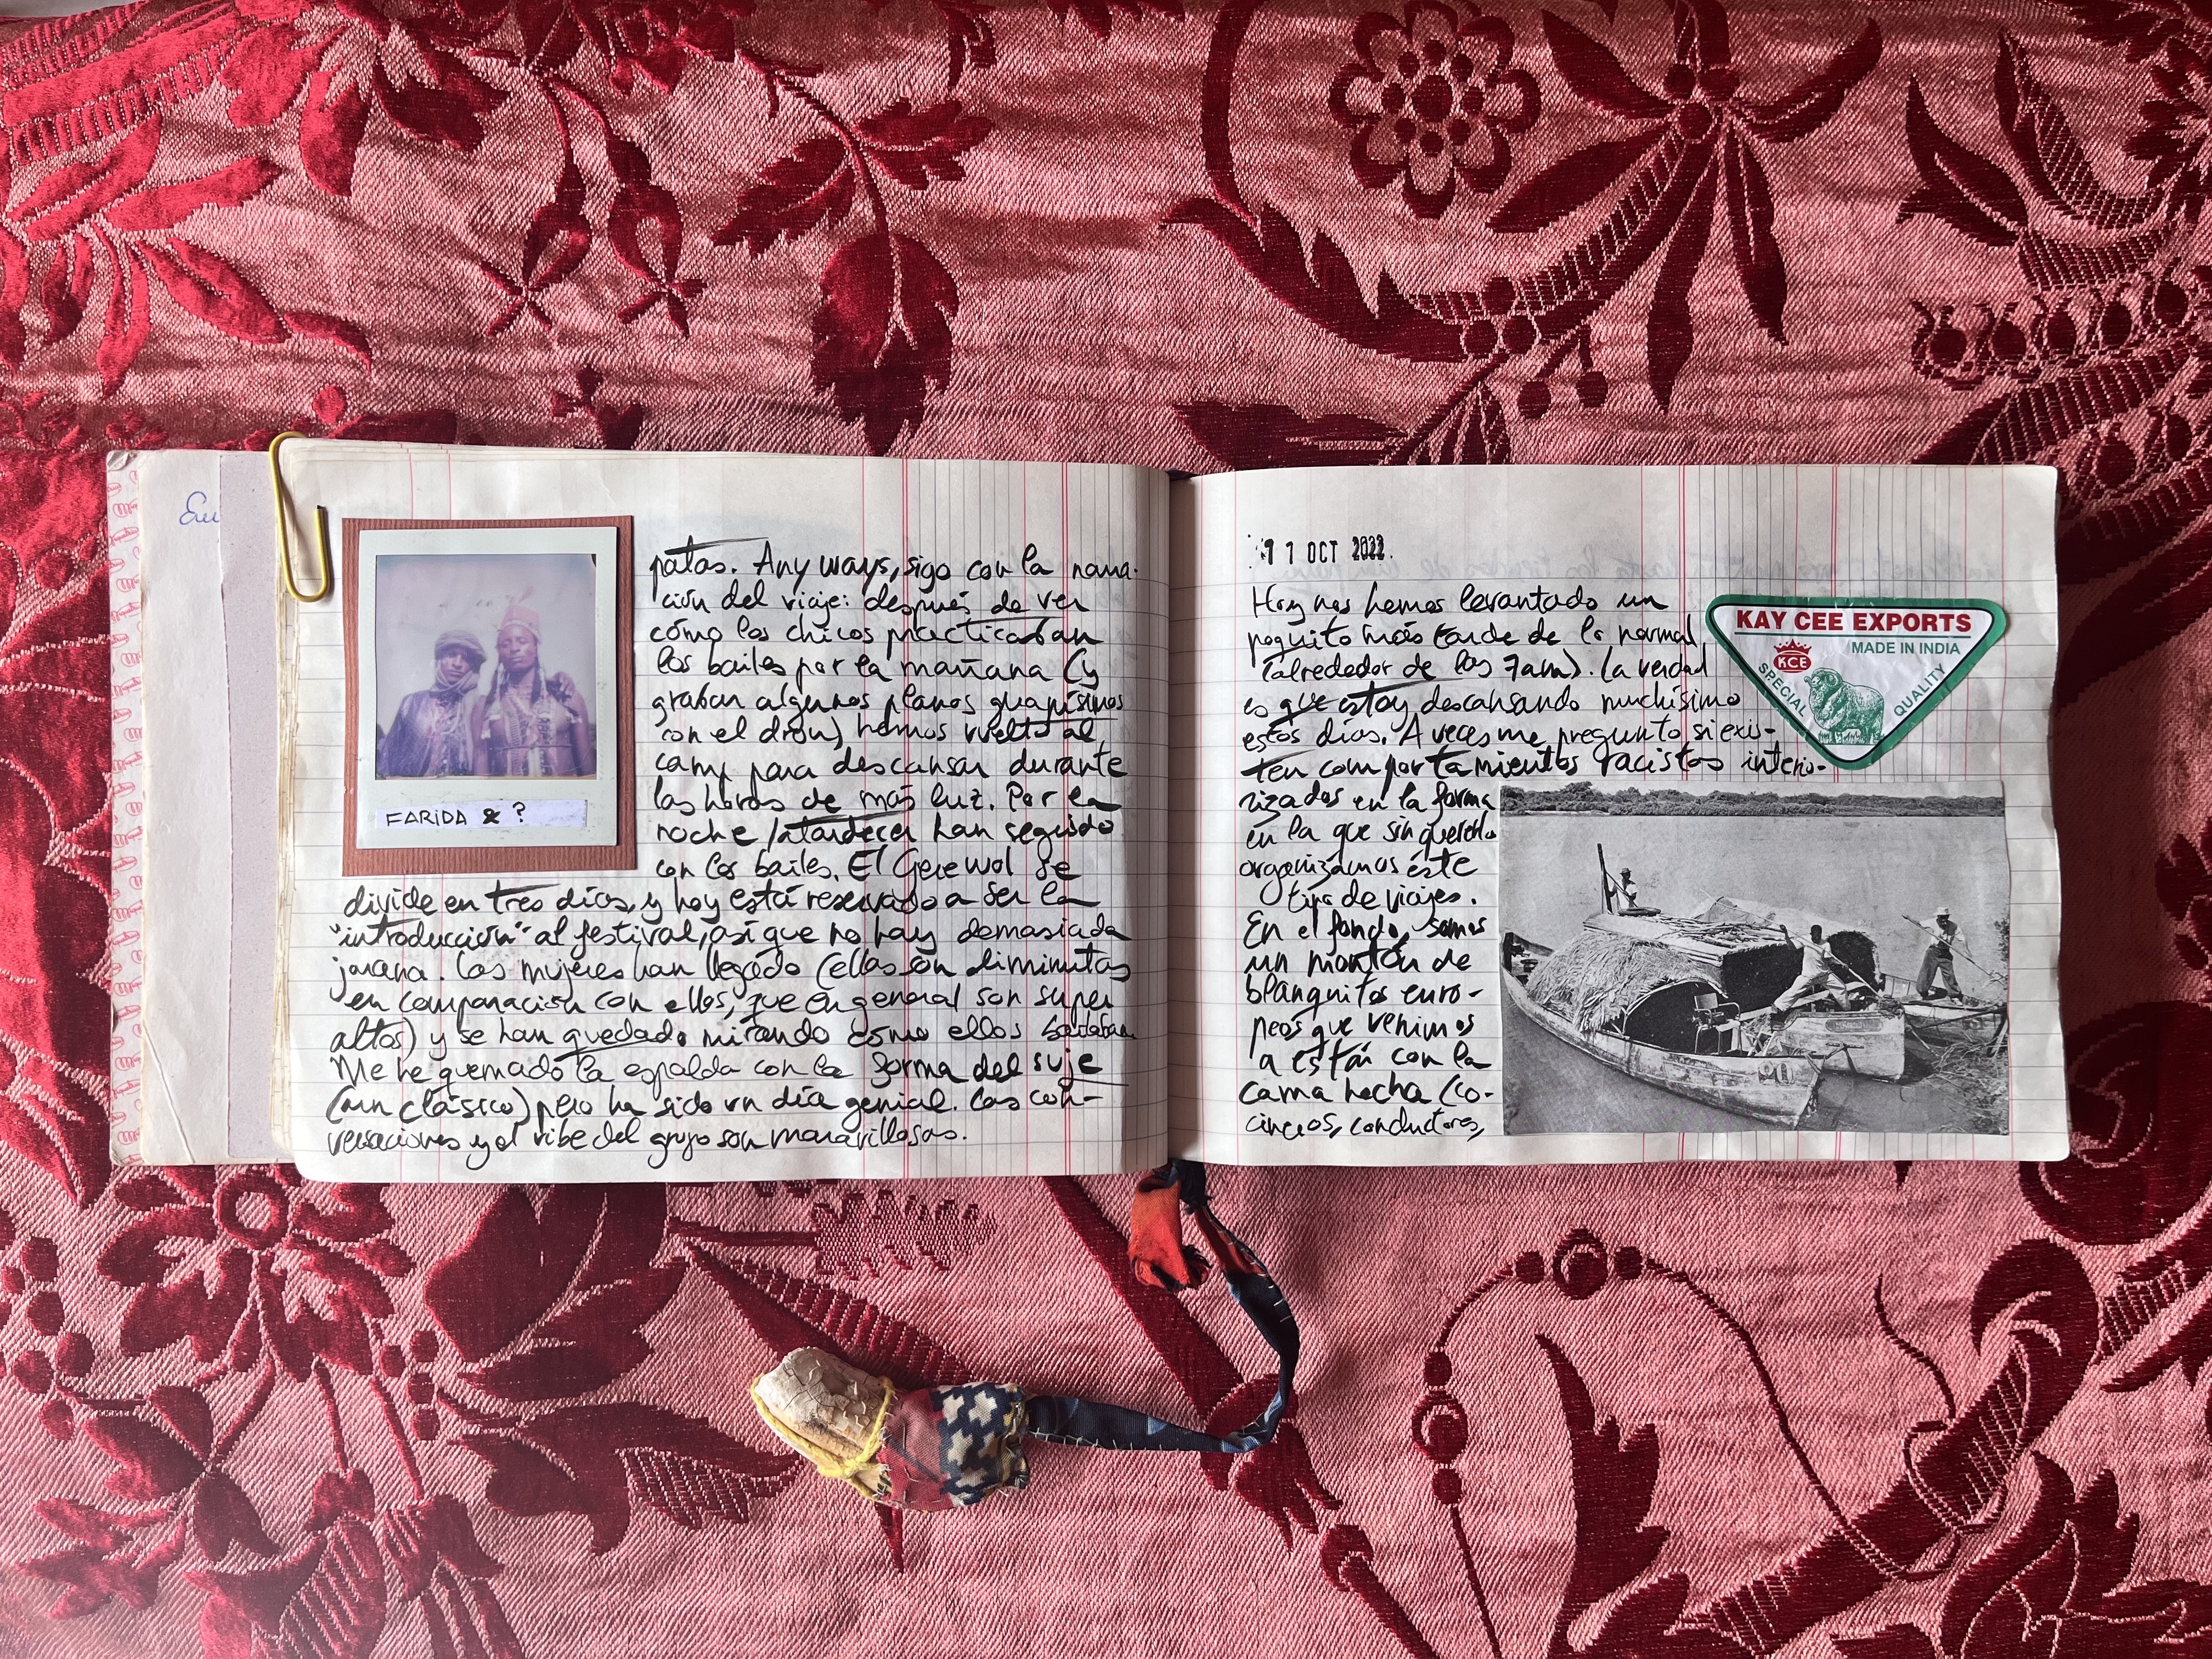 Eu
FARIDA & ?
patas. Anyways, sigo con la narra-
ción del viaje: después de ver
cómo los chicos practicaban
los bailes por la mañana (y
grabar algunos planos guapísimos
con el dron) hemos vuelto al
camp para descansar durante
las horas de más luz. Por la
noche/atardecer han seguido
con los bailes. El Gerewol se
divide en tres días, y hoy está reservado a ser la
"introducción" al festival, así que no hay demasiada
jarana. Las mujeres han llegado (ellas son diminutas
en comparación con ellos, que en general son super
altos) y se han quedado mirando cómo ellos bailaban.
Me he quemado la espalda con la forma del suje
(un clásico) pero ha sido un día genial. Las con-
versaciones y el vibe del grupo son maravillosas.
OCT 2022.
Hoy nos hemos levantado un
poquito más tarde de lo normal
(alrededor de las 7am). La verdad
es que estoy descansando muchísimo
estos días. A veces me pregunto si exis-
ten comportamientos racistas interio-
rizados en la forma
en la que sin quererlo
organizamos éste
tipo de viajes.
En el fondo, somos
un montón de
blanquitos euro-
peos que venimos
a estar con la
cama hecha (co-
cineros, conductores,
KAY CEE EXPORTS
MADE IN INDIA
KCE
SPECIAL QUALITY